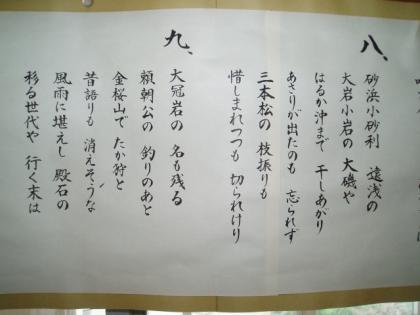 八、
砂浜小砂利　遠浅の
大岩小岩の　大磯や
はるか沖まで　干しあがり
あさりが出たのも　忘られず
三本松の　枝振りも
惜しまれつつも　切られけり
九、
大冠岩の　名も残る
頼朝公の　釣りのあと
金桜山で　たか狩と
昔語りも　消えそうな
風雨に堪えし　殿石の
移る世代や　行く末は